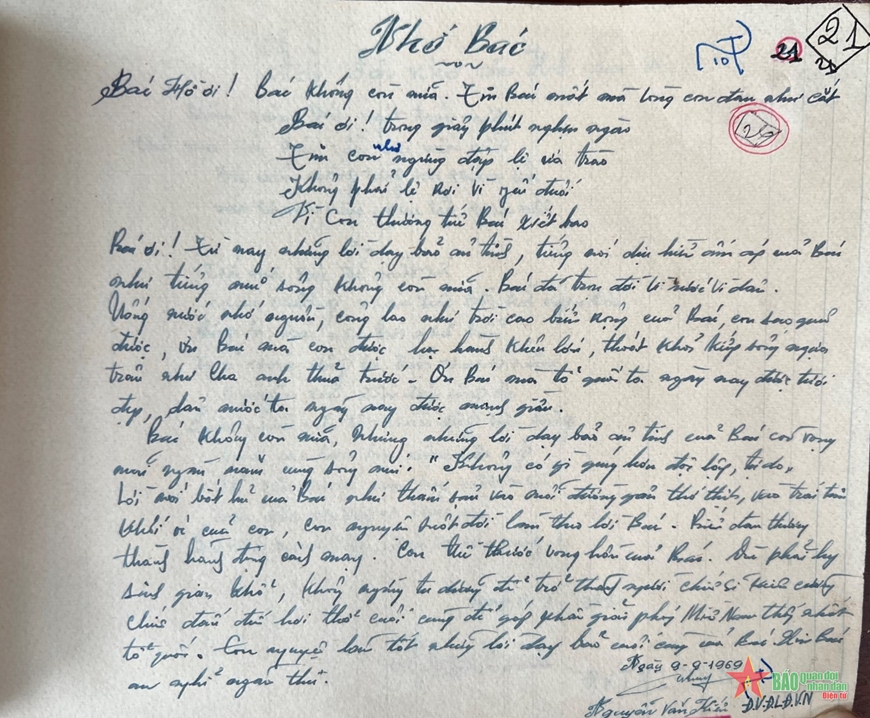 Nhớ Bác
10
21
21
29
Bác Hồ ơi! Bác không còn nữa. Tin Bác mất mà lòng con đau như cắt
Bác ơi! trong giây phút nghẹn ngào
Tim con như ngừng đập lệ ứa trào
Không phải lệ rơi vì yếu đuối
Vì con thương tiếc Bác xiết bao
Bác ơi! Từ nay những lời dạy bảo ân tình, tiếng nói dịu hiền ấm áp của Bác
như tiếng suối không còn nữa. Bác đã trọn đời vì nước vì dân.
Uống nước nhớ nguồn, công lao như trời cao biển rộng của Bác, con sao quên
được, ơn Bác mà con được học hành khôn lớn, thoát khỏi kiếp sống ngựa
trâu như cha anh thuở trước - Ơn Bác mà tổ quốc ta ngày nay được tươi
đẹp, dân nước ta ngày nay được
Bác không còn nữa, nhưng những lời dạy bảo ân tình của Bác còn vọng
muôn ngàn năm cùng sông núi. "Không có gì quý hơn độc lập, tự do"
Lời nói bất hủ của Bác như thấm sâu vào mỗi đường gân thớ thịt, vào trái tim
khối óc của con, con nguyện suốt đời làm theo lời Bác. Biến đau thương
thành hành động cách mạng. Con thề trước vong hồn của Bác. Dù phải hy
sinh gian khổ, không ngừng tu dưỡng để trở thành người chiến sĩ kiên cường
chiến đấu đến hơi thở cuối cùng để góp phần giải phóng Miền Nam thống nhất
tổ quốc. Con nguyện làm tốt những lời dạy bảo cuối cùng của Bác
an nghỉ ngàn thu.
Ngày 9-9-1969
Nguyễn Văn Đ.V.Đ.L.Đ.V.N
BÁO Quân đội nhân dân Điện tử